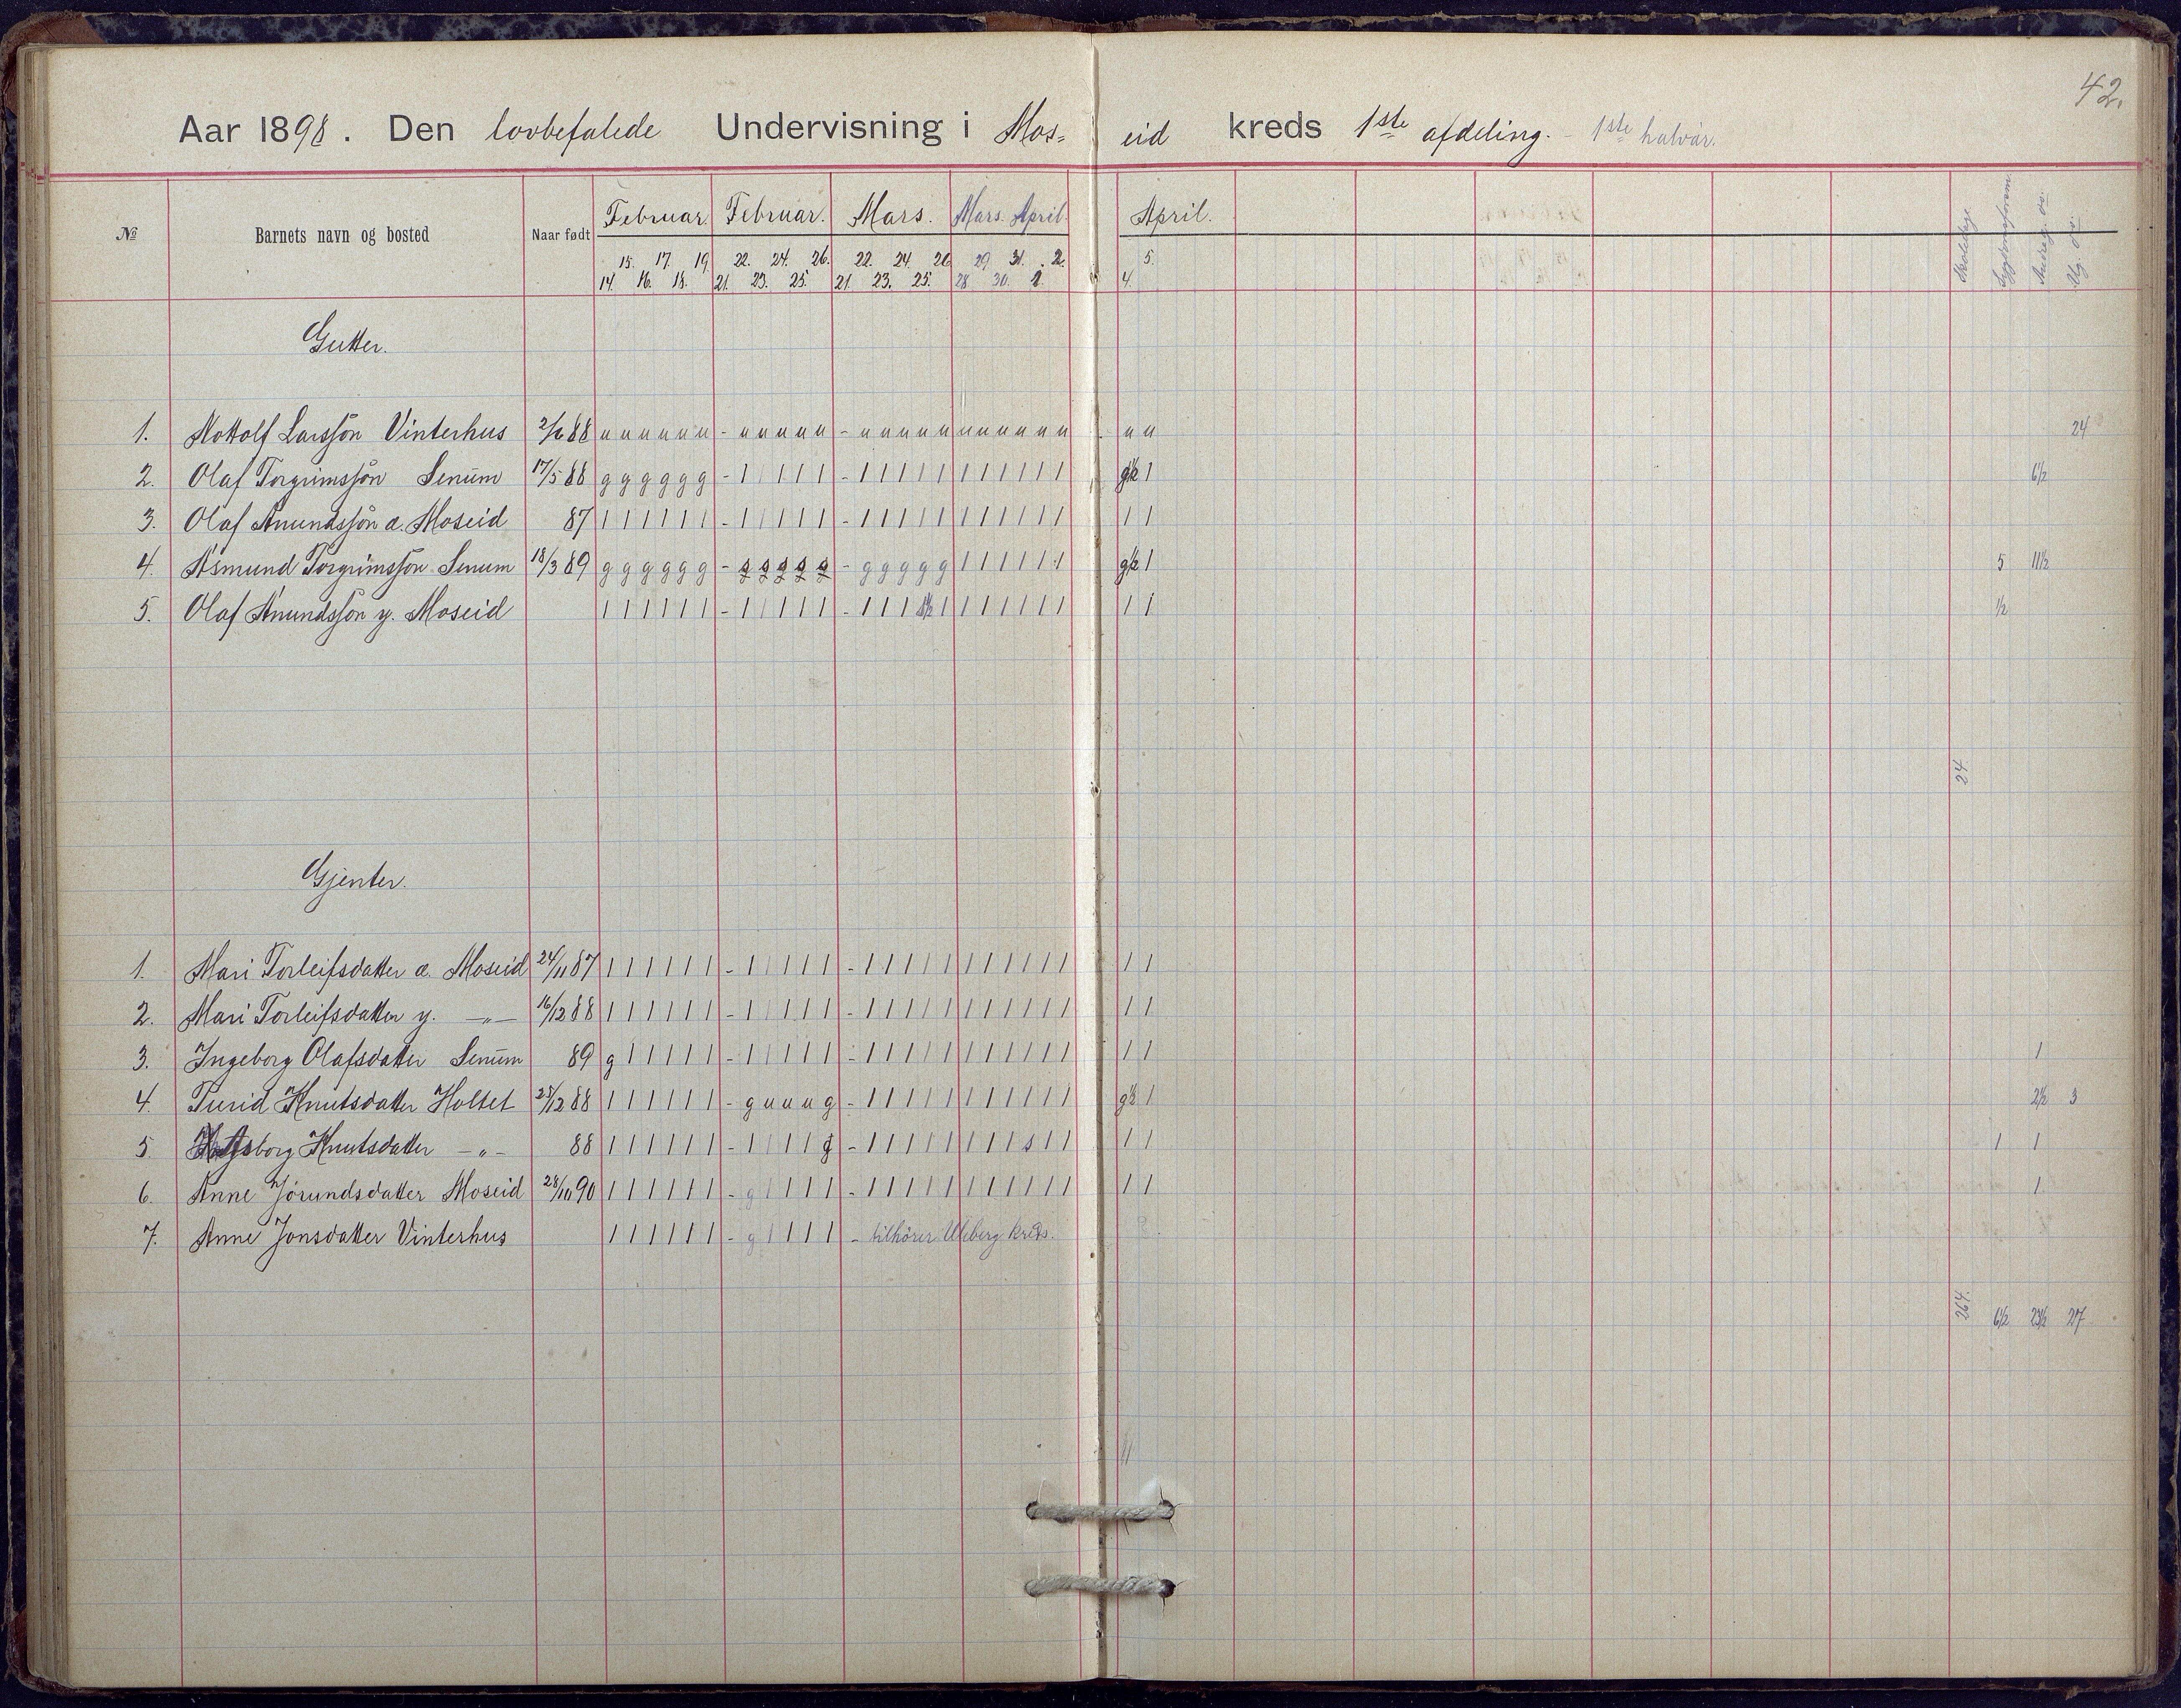 42.
Aar 1898. Den lovbefalede Undervisning i Mos= eid kreds 1ste afdeling. - 1ste halvår.
№ Barnets navn og bosted Naar født Februar. Februar. Mars. Mars. April. April. Skoledage Sygdomsfors. And. g. os: Ug. os:
15. 17. 19. 22. 24. 26. 22. 24. 26 29 31. 2. 5.
14. 16. 18. 21. 23. 25. 21. 23. 25. 28. 30. 1. 4.
Gutter.
1. Nottolf Larssön Vinterhus 2/6 88 u u u u u u - u u u u u - u u u u u u u u u u u u u 24
2. Olaf Torgrimssön Senum 17/5 88 g g g g g g - 1 1 1 1 1 - 1 1 1 1 1 1 1 1 1 1 1 g½ 1 6½
3. Olaf Anundssön æ. Moseid 87 1 1 1 1 1 1 - 1 1 1 1 1 - 1 1 1 1 1 1 1 1 1 1 1 1 1
4. Åsmund Torgrimssön Senum 18/3 89 g g g g g g - s s s s s - g g g g g 1 1 1 1 1 1 g½ 1 5 11½
5. Olaf Anundssön y. Moseid 1 1 1 1 1 1 - 1 1 1 1 1 - 1 1 1 s½ 1 1 1 1 1 1 1 1 1 ½
24
Gjenter.
1. Mari Torleifsdatter æ. Moseid 24/11 87 1 1 1 1 1 1 - 1 1 1 1 1 - 1 1 1 1 1 1 1 1 1 1 1 1 1
2. Mari Torleifsdatter y. -„- 16/12 88 1 1 1 1 1 1 - 1 1 1 1 1 - 1 1 1 1 1 1 1 1 1 1 1 1 1
3. Ingeborg Olafsdatter Senum 89 g 1 1 1 1 1 - 1 1 1 1 1 - 1 1 1 1 1 1 1 1 1 1 1 1 1 1
4. Turid Knutsdatter Holtet 25/12 88 1 1 1 1 1 1 - g u u u g - 1 1 1 1 1 1 1 1 1 1 1 g½ 1 2½ 3
5. Knutsdatter -„- 88 1 1 1 1 1 1 - 1 1 1 1 g - 1 1 1 1 1 1 1 1 s 1 1 1 1 1 1
6. Anne Jörundsdatter Moseid 28/10 90 1 1 1 1 1 1 - g 1 1 1 1 - 1 1 1 1 1 1 1 1 1 1 1 1 1 1
7. Anne Jonsdatter Vinterhus 1 1 1 1 1 1 - g 1 1 1 1 - tilhörer Uleberg kreds.
264. 6½ 23½ 27